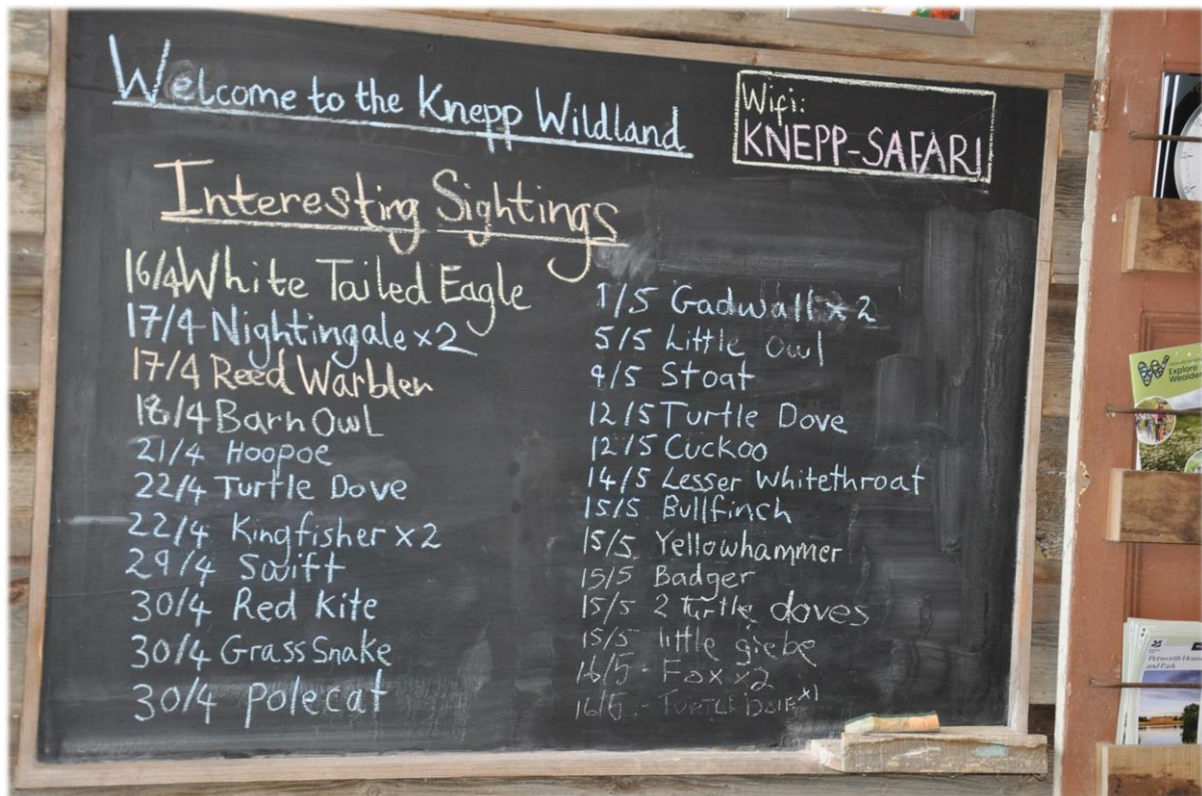 Welcome to the Knepp Wildland
Wifi:
KNEPP-SAFARI
Interesting Sightings
16/4 White Tailed Eagle
17/4 Nightingale x2
17/4 Reed Warbler
18/4 Barn Owl
21/4 Hoopoe
22/4 Turtle Dove
22/4 Kingfisher x2
29/4 Swift
30/4 Red Kite
30/4 Grass Snake
30/4 Polecat
1/5 Gadwall x2
5/5 Little Owl
9/5 Stoat
12/5 Turtle Dove
12/5 Cuckoo
14/5 Lesser Whitethroat
15/5 Bullfinch
15/5 Yellowhammer
15/5 Badger
15/5 2 Turtle doves
15/5 little grebe
16/5 - Fox x2
16/5 - TURTLE DOVE x1
Explore
Wealden
Petworth House
and Park